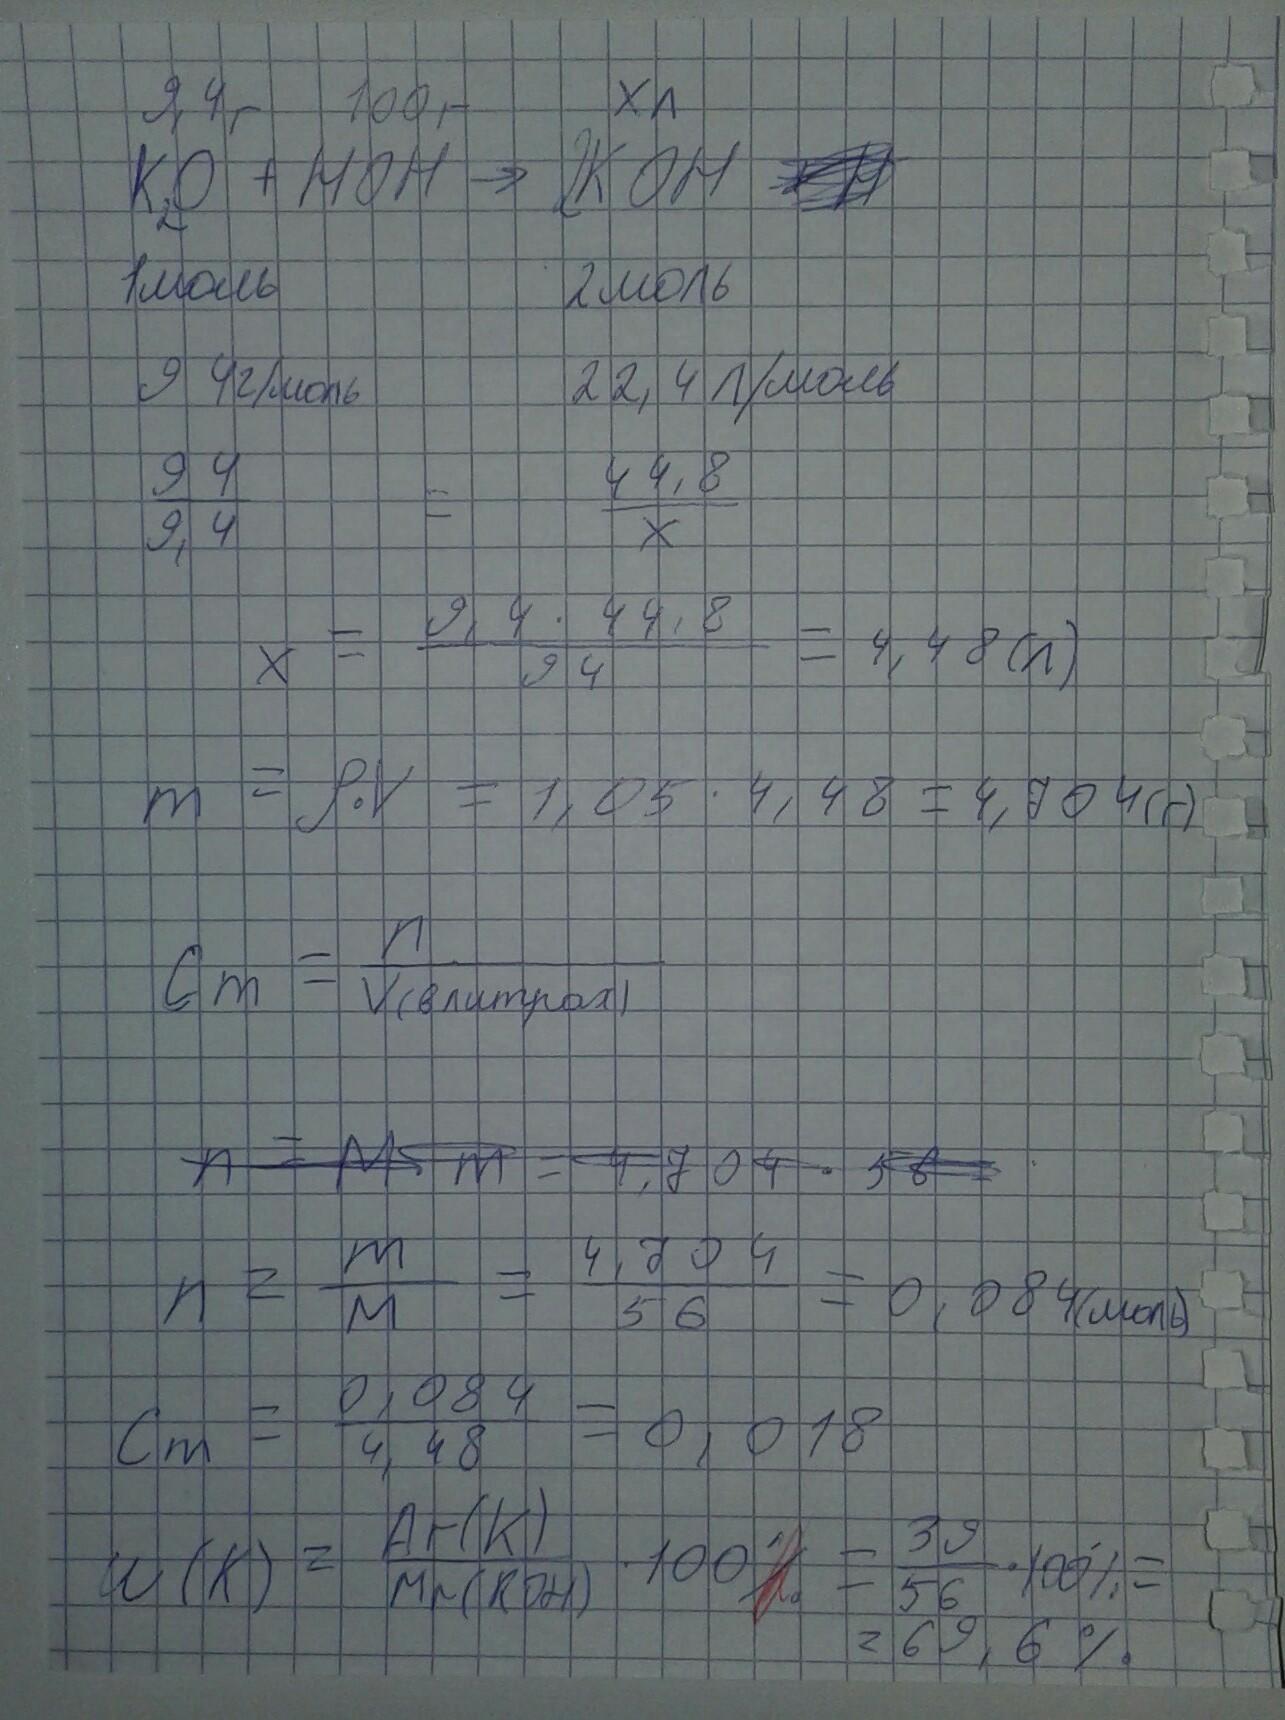 9,4г 100г xл
K₂O + HOH → 2KOH
1моль 2моль
94г/моль 22,4л/моль
94/9,4 = 44,8/x
x = 9,4 · 44,8/94 = 4,48(л)
m = ρ·V = 1,05 · 4,48 = 4,704(г)
Cm = n/V(в литрах)
n = M · m = 4,704 · 56
n = m/M = 4,704/56 = 0,084(моль)
Cm = 0,084/4,48 = 0,018
ω(K) = Ar(K)/Mr(KOH) · 100% = 39/56 · 100% =
= 69,6%.